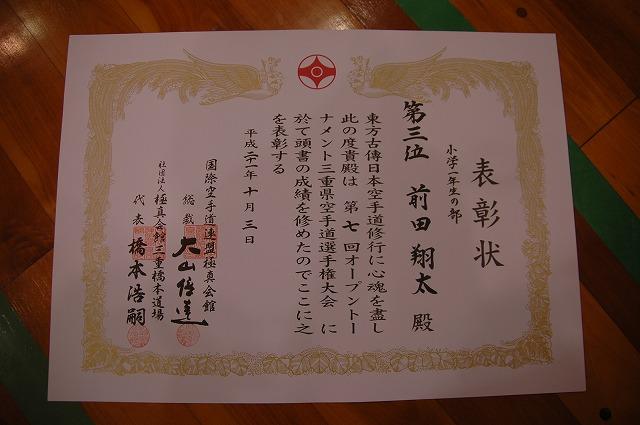 表彰状
小学一年生の部
第三位 前田翔太 殿
東方古傳日本空手道修行に心魂を盡し
此の度貴殿は 第七回オープントー
ナメント三重県空手道選手権大会 に
於て頭書の成績を修めたのでここに之
を表彰する
平成二十一年十月三日
国際空手道連盟極真会館
総裁 大山倍達
社団法人 極真会館三重橋本道場
代表 橋本浩嗣